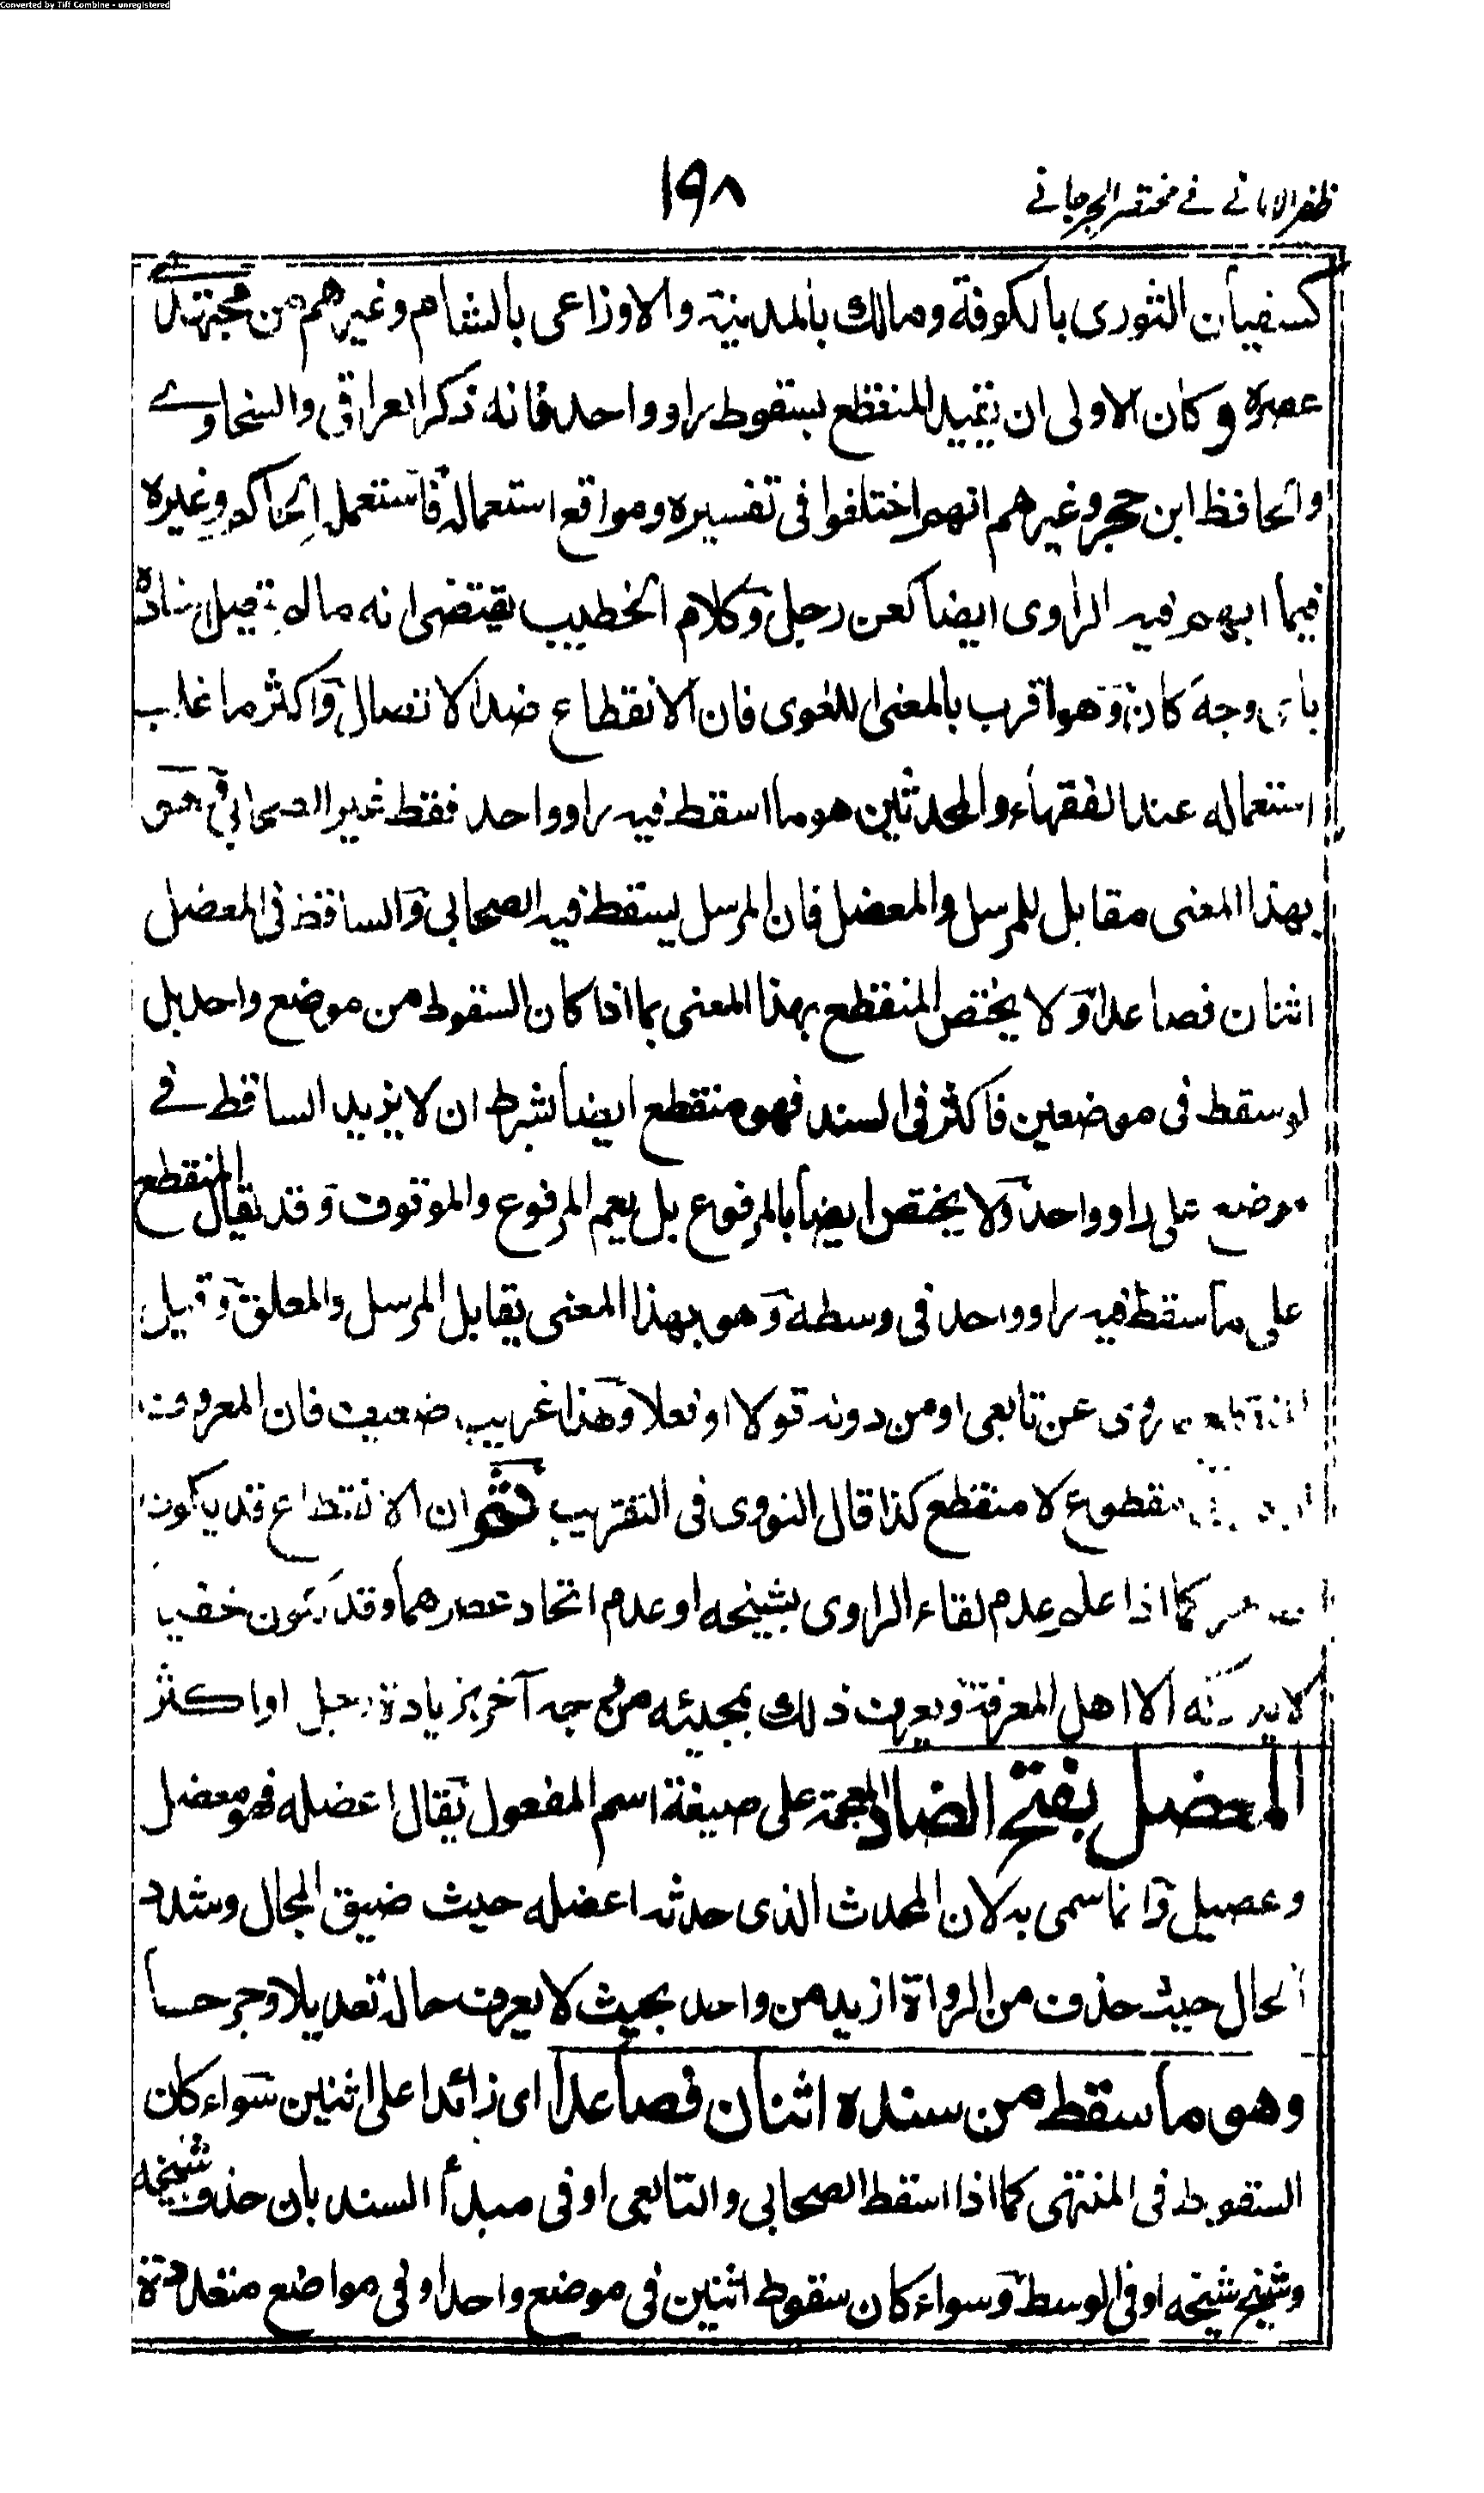 Converted by Tiff Combine - unregistered
ظفر الامانے فے مختصر الجرجانے
١٩٨
كسفيان الثورى بالكوفة ومالك بالمدينة والاوزاعى بالشام وغيرهم من مجتهدے
عصره وكان الاولى ان يقيد المنقطع بسقوط راو واحد فانه ذكر العراقى والسخاوے
والحافظ ابن حجر وغيرهم انهم اختلفوا فى تفسيره ومواقع استعماله فاستعمل الحاكم وغيره
فيما ابهم فيه الراوى ايضا كعن رجل وكلام الخطيب يقتضى انه ما لم يتصل اسناده
باى وجه كان وهو اقرب بالمعنى اللغوى فان الانقطاع ضد الاتصال واكثر ما غلب
استعماله عند الفقهاء والمحدثين هو ما اسقط فيه راو واحد فقط غير الصحابى فهو
بهذا المعنى مقابل للمرسل والمعضل فان المرسل يسقط فيه الصحابى والساقط فى المعضل
اثنان فصاعدا ولا يختص المنقطع بهذا المعنى بما اذا كان السقوط من موضع واحد بل
لو سقط فى موضعين فاكثر فى السند فهو منقطع ايضا بشرط ان لا يزيد الساقط فے
موضع على راو واحد ولا يختص ايضا بالمرفوع بل يعم المرفوع والموقوف وقد يقال المنقطع
على ما سقط فيه راو واحد فى وسطه وهو بهذا المعنى يقابل المرسل والمعلق وقيل
المنقطع ما روى عن تابعى او من دونه قولا او فعلا وهذا غريب ضعيف فان المعروف
مقطوع لا منقطع كذا قال النووى فى التقريب ثم ان الانقطاع قد يكون
كما اذا علم عدم لقاء الراوى بشيخه او عدم اتحاد عصرهما وقد يكون خفيا
لا يدركه الا اهل المعرفة ويعرف ذلك بمجيئه من وجه آخر بزيادة رجل او اكثر
المعضل بفتح الضاد المعجمة على صيغة اسم المفعول يقال اعضله فهو معضل
وعضيل وانما سمى به لان المحدث الذى حدثه اعضله حيث ضيق المجال وشدد
الحال حيث حذف من الرواة ازيد من واحد بحيث لا يعرف حاله تعديلا وجرحا
وهو ما سقط من سنده اثنان فصاعدا اى زائدا على اثنين سواء كان
السقوط فى المنتهى كما اذا اسقط الصحابى والتابعى او فى مبدأ السند بان حذف شيخه
وشيخ شيخه او فى الوسط وسواء كان سقوط اثنين فى موضع واحد او فى مواضع متعددة